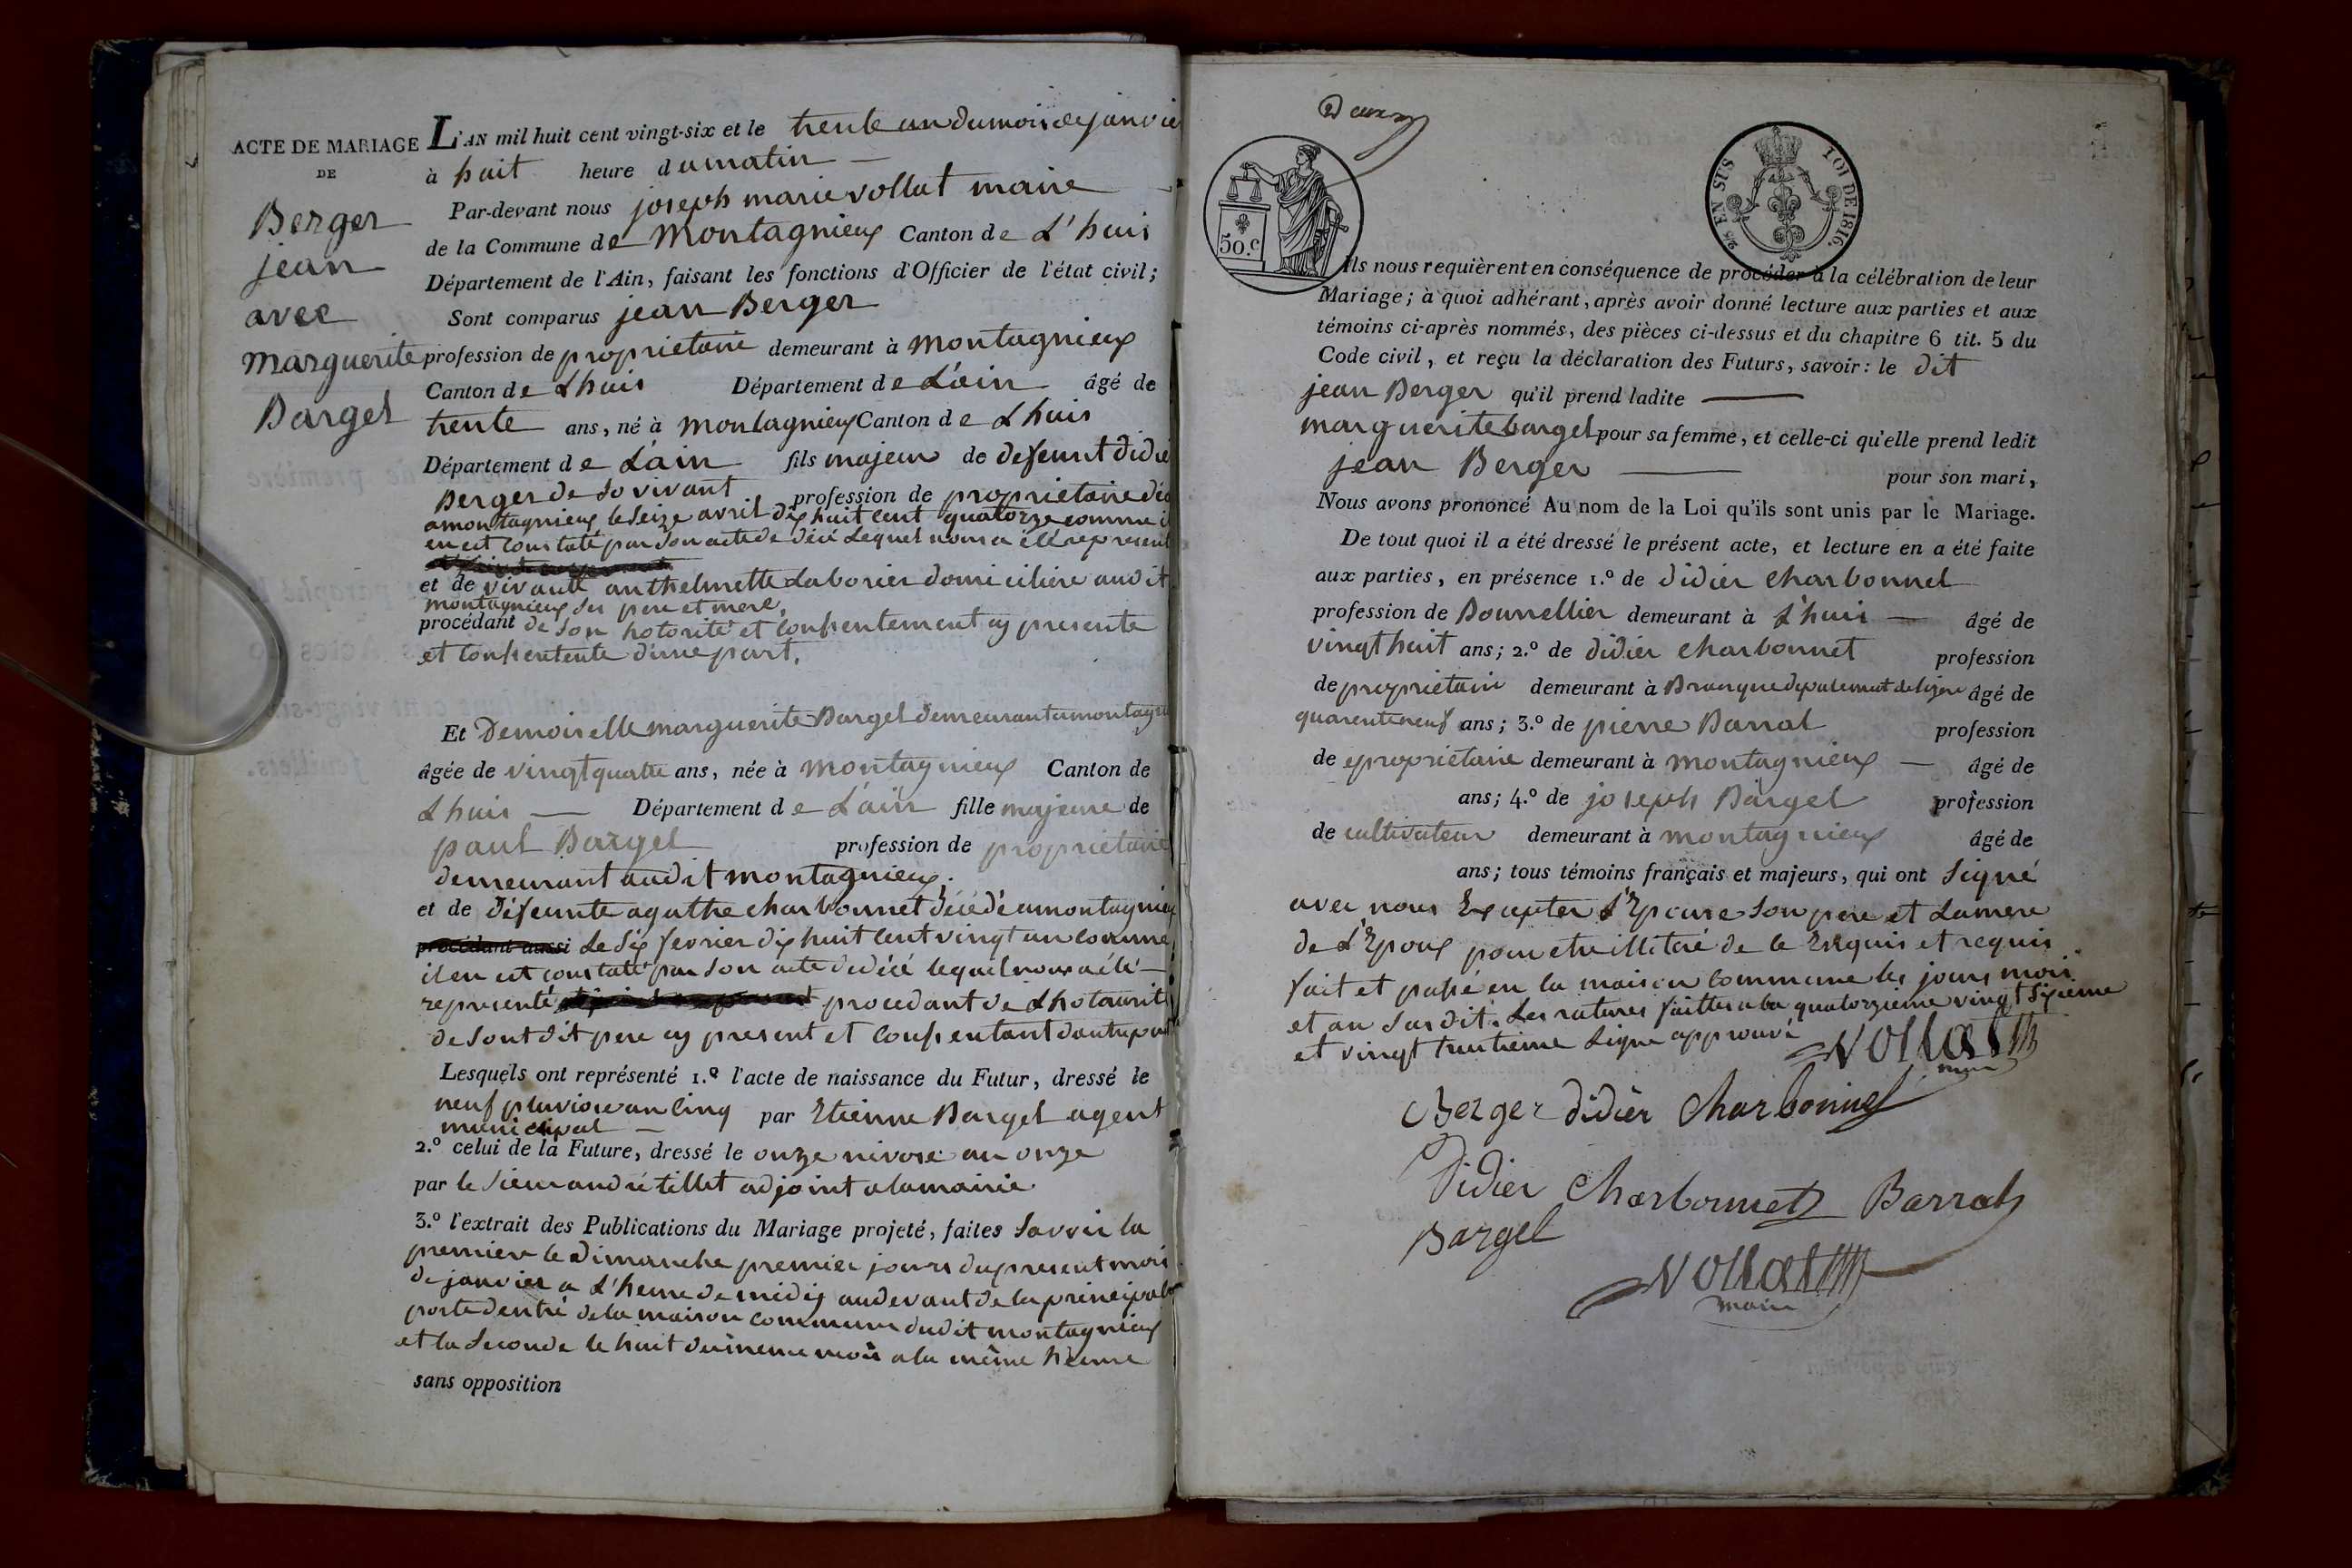 ACTE DE MARIAGE
DE
Berger
jean
avec
marguerite
Bargel
L'AN mil huit cent vingt-six et le trente un du mois de janvier
à huit heure du matin —
Par-devant nous joseph marie vollat maire
de la Commune de montagnieux Canton de L'huis
Département de l'Ain, faisant les fonctions d'Officier de l'état civil;
Sont comparus jean Berger
profession de proprietaire demeurant à montagnieux
Canton de Lhuis Département de L'ain âgé de
trente ans, né à montagnieux Canton de Lhuis
Département de L'ain fils majeur de defeunt didie
Berger de so vivant profession de proprietaire déc
a montagnieux le seize avril dix huit cent quatorze comme i
en est constaté par son acte de décé lequel nous a été represent
et de vivante anthelmette Laborier domiciliére audit
montagnieux ses pere et mere,
procédant de son hotorité et consentement cy presente
et consentente d'une part,
Et Demoiselle marguerite Bargel demeurant a montagni
âgée de vingt quatre ans, née à montagnieux Canton de
Lhuis — Département de L'ain fille majeure de
paul Bargel profession de proprietaire
demeurant audit montagnieux;
et de défeunte agathe charbonnet décédé a montagnieux
procédant aussi Le dix fevrier dix huit cent vingt un comme
il en est constaté par son acte de décé lequel nous a été —
representé procedant de Lhotorité
de sont dit pere cy present et consentant d'autre part
Lesquels ont représenté 1.º l'acte de naissance du Futur, dressé le
neuf pluviose an cinq par Etienne Bargel agent
municipal —
2.º celui de la Future, dressé le onze nivose an onze
par le sieur andré tillet adjoint a la mairie
3.º l'extrait des Publications du Mariage projeté, faites savoir la
premiere le dimanche premier jours du present mois
de janvier a L'heure de midi au devant de la principale
porte dentré de la maison commune dudit montagnieux
et la seconde le huit du même mois a la même heure
sans opposition
Deux
50.c
25 EN SUS
LOI DE 1816.
Ils nous requièrent en conséquence de procéder à la célébration de leur
Mariage; à quoi adhérant, après avoir donné lecture aux parties et aux
témoins ci-après nommés, des pièces ci-dessus et du chapitre 6 tit. 5 du
Code civil, et reçu la déclaration des Futurs, savoir: le dit
jean Berger qu'il prend ladite —
marguerite bargel pour sa femme, et celle-ci qu'elle prend ledit
jean Berger — pour son mari,
Nous avons prononcé Au nom de la Loi qu'ils sont unis par le Mariage.
De tout quoi il a été dressé le présent acte, et lecture en a été faite
aux parties, en présence 1.º de didier charbonnel
profession de Bourrellier demeurant à L'huis — âgé de
vingt huit ans; 2.º de didier charbonnet profession
de proprietaire demeurant à Brangue departement de lizere âgé de
quarente neuf ans; 3.º de pierre Barral profession
de proprietaire demeurant à montagnieux — âgé de
ans; 4.º de joseph Bargel profession
de cultivateur demeurant à montagnieux âgé de
ans; tous témoins français et majeurs, qui ont signé
avec nous Excepter L'Epouse son pere et La mere
de L'Epoux pour etre illiteré de le Enquis et requis
fait et passé en la maison commune les jours mois
et an susdit. Les ratures faittes a la quatorzieme vingt sixieme
et vingt huitieme Ligne approuvé vollat
maire
Berger didier charbonnel
Didier Charbonnet Barral
Bargel
vollat
maire